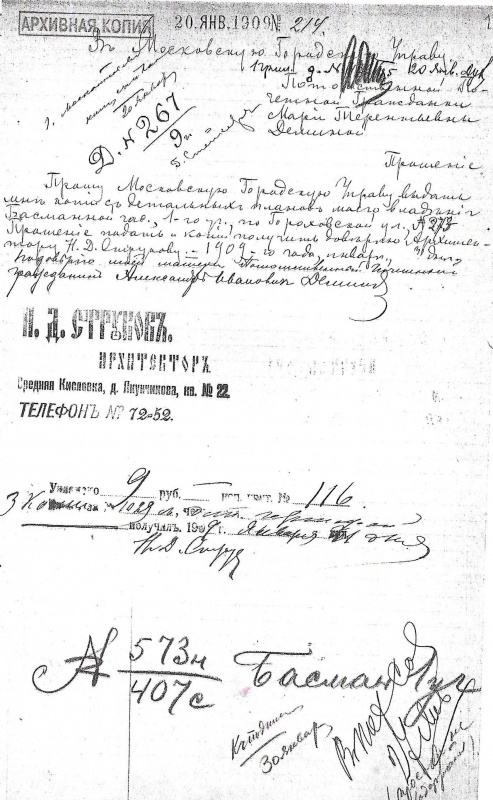 АРХИВНАЯ КОПИЯ
20. ЯНВ. 1909 № 214
Въ Московскую Городскую Управу
20 Янв.
Потомственной По-
четной Гражданки
Маріи Терентьевны
Деминой
20 января
Д. № 267
9 н
Прошеніе.
Прошу Московскую Городскую Управу выдать
мнѣ копію съ детальныхъ плановъ моего владѣнія
Басманной час., 1-го уч., по Гороховской ул., № 273
Прошеніе подать и копіи получить довѣряю Архитек-
тору Н. Д. Струкову. – 1909-го года, января, дня
По довѣрію моей матери Потомственный Почетный
гражданинъ Александръ Ивановичъ Деминъ
Н. Д. СТРУКОВЪ.
АРХИТЕКТОРЪ
Средняя Кисловка, д. Якунчикова, кв. № 22.
ТЕЛЕФОНЪ № 72-52.
9 руб. квит. № 116.
3 Копіи
получилъ 1909 г. января 31 дня
Н. Д. Струк
№ 573н
407с
Басман 1 уч
30 январ